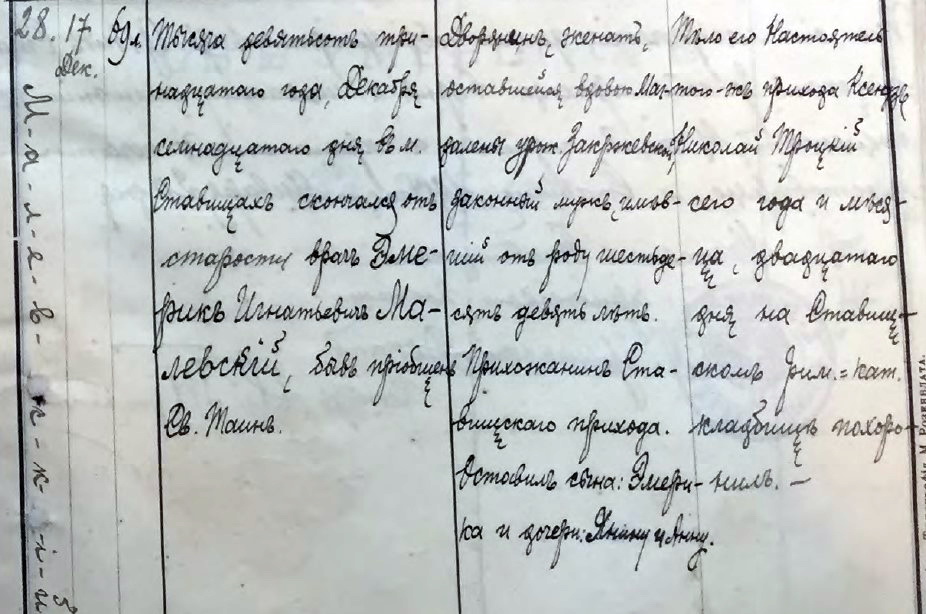 28.
17
Дек.
69 л.
М-а-л-е-в-с-к-і-й
Тысяча девятьсотъ три-
надцатаго года, Декабря
семнадцатаго дня въ м.
Ставищахъ скончался отъ
старости врачъ Эме-
рикъ Игнатьевичъ Ма-
левскій, бывъ пріобщенъ
Св. Таинъ.
Дворянинъ, женатъ,
оставшейся вдовою Маг-
далены урож. Закржевской
законный мужъ, имѣв-
шій отъ роду шестьде-
сять девять лѣтъ.
Прихожанинъ Ста-
вищскаго прихода.
Оставилъ сына: Эмери-
ка и дочери: Янину и Анну.
Тѣло его Настоятель
того-жъ прихода Ксендзъ
Николай Троцкій
сего года и мѣся-
ца, двадцатаго
дня на Ставищ-
скомъ Рим.=Кат.
кладбищѣ похоро-
нилъ. —